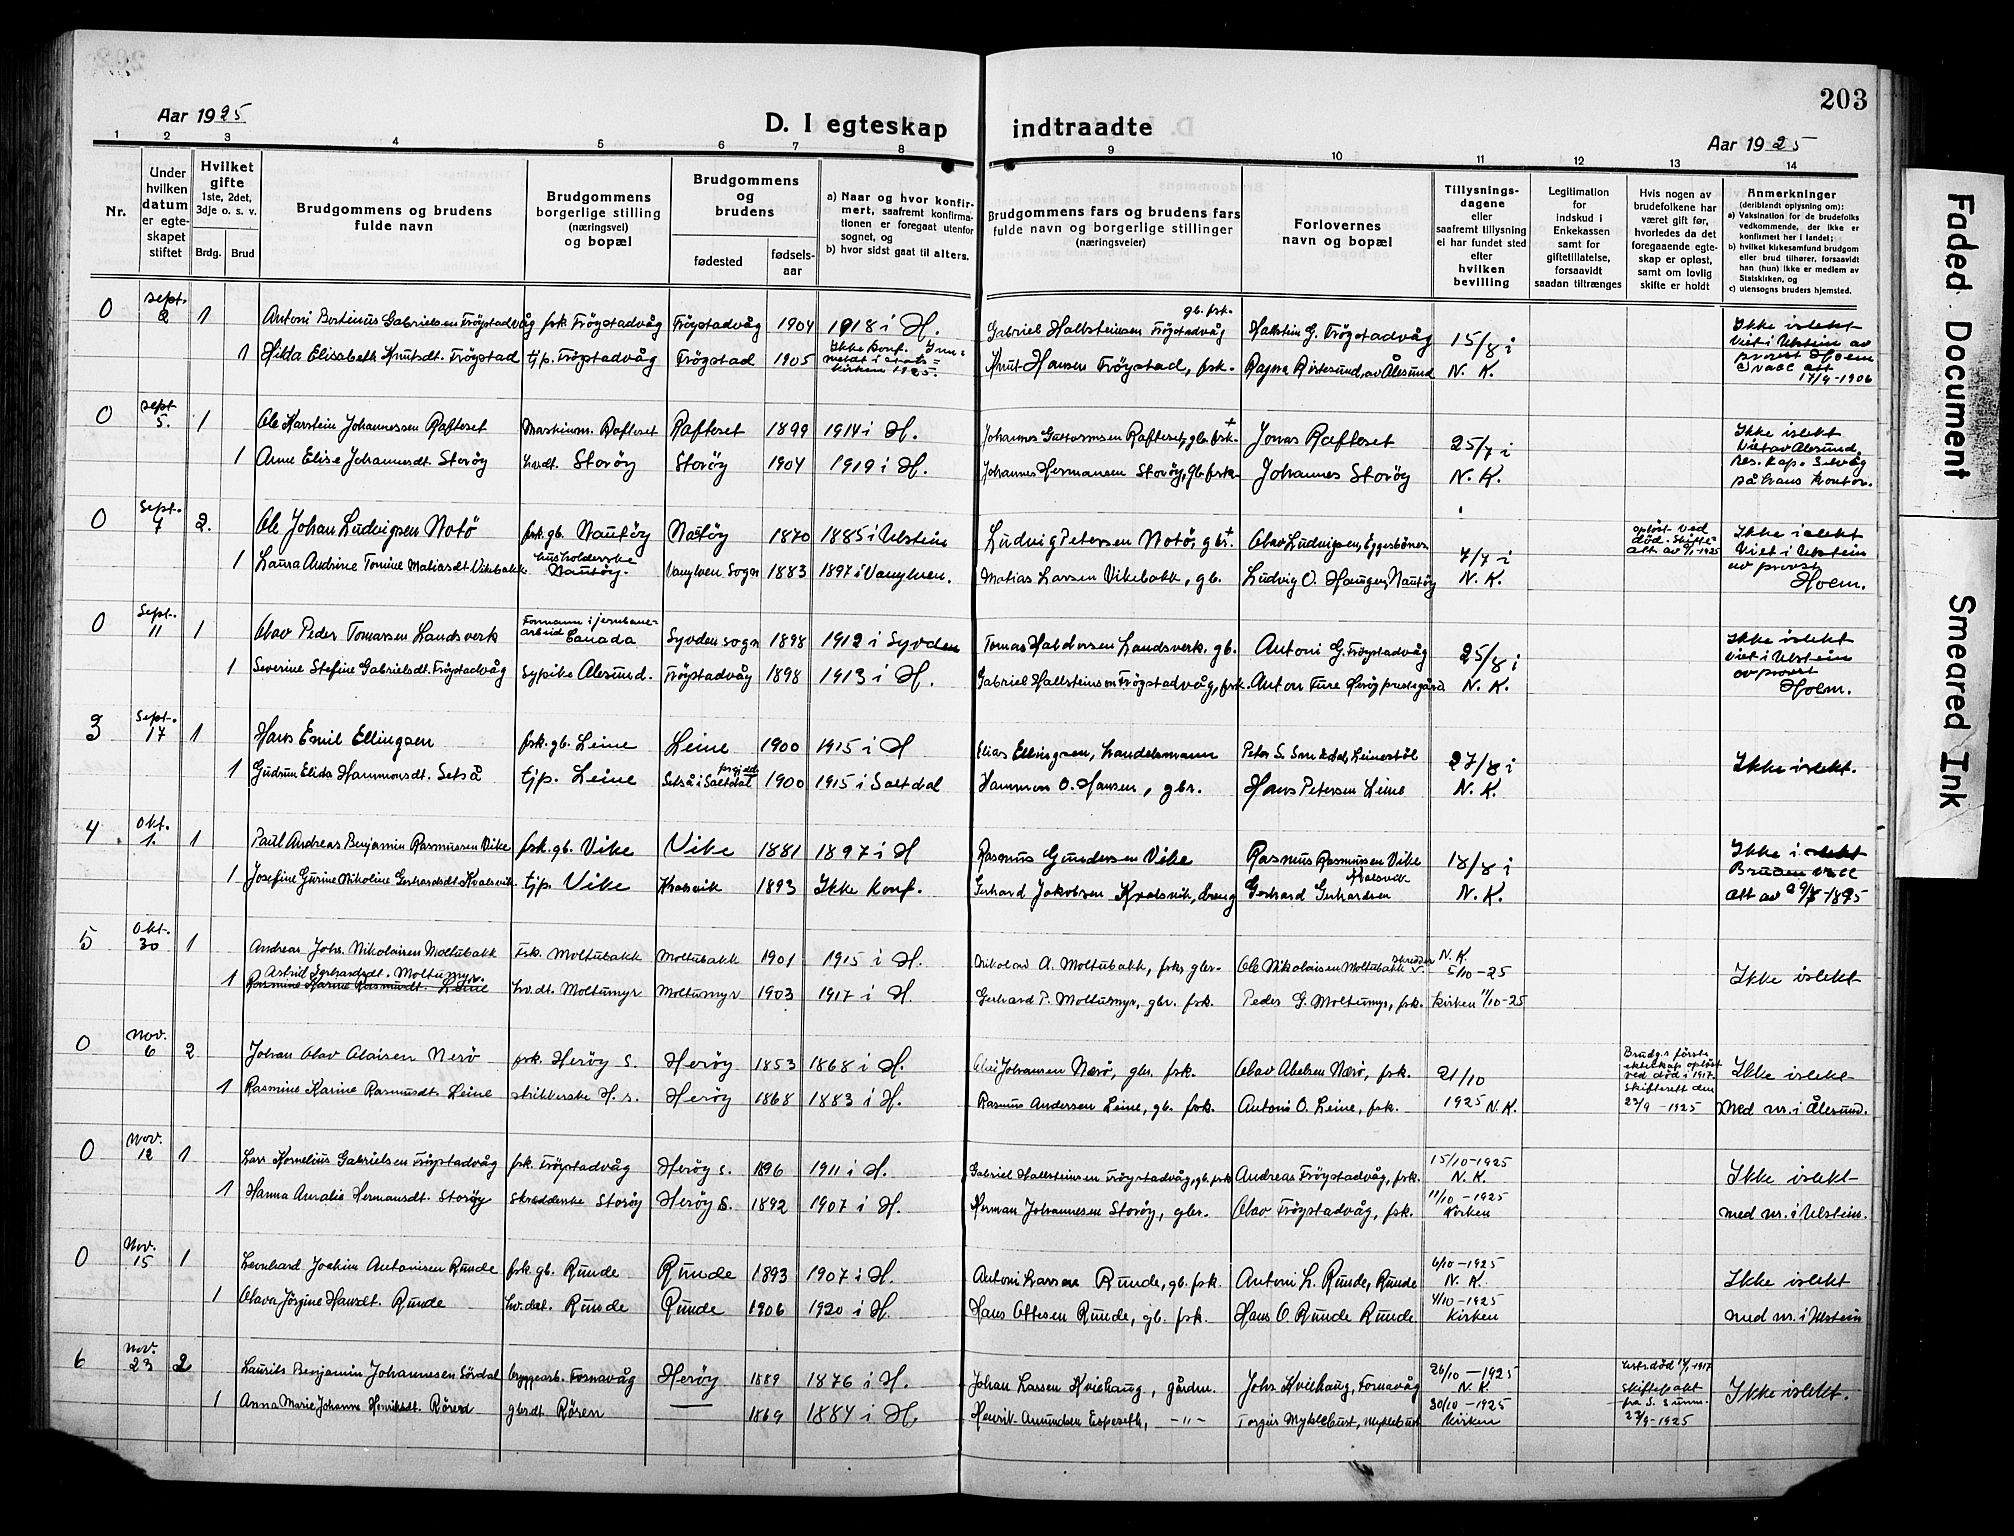 203
Aar 1925
D. I egteskap indtraadte
Aar 1925
1 2 3 4 5 6 7 8 9 10 11 12 13 14
Nr.
Under hvilken datum er egte-skapet stiftet
Hvilket gifte
1ste, 2det, 3dje o. s. v.
Brdg. Brud
Brudgommens og brudens fulde navn
Brudgommens borgerlige stilling (næringsvei) og bopæl
Brudgommens og brudens
fødested
fødsels-aar
a) Naar og hvor konfir-mert, saafremt konfirma-tionen er foregaat utenfor sognet, og
b) hvor sidst gaat til alters.
Brudgommens fars og brudens fars fulde navn og borgerlige stillinger
(næringsveier)
Forlovernes navn og bopæl
Tillysnings-dagene eller saafremt tillysning ei har fundet sted efter hvilken bevilling
Legitimation for indskud i Enkekassen samt for giftetillatelse, forsaavidt saadan tiltrænges
Hvis nogen av brudefolkene har været gift før, hvorledes da det foregaaende egte-skap er opløst, samt om lovlig skifte er holdt
Anmerkninger
(deriblandt oplysning om):
a) Vaksination for de brudefolks vedkommende, der ikke er konfirmert her i landet;
b) hvilket kirkesamfund brudgom eller brud tilhører, forsaavidt han (hun) ikke er medlem av Statskirken, og
c) utensogns bruders hjemsted.
0 Sept. 2 1 Antoni Bertinus Gabrielsen Frøystadvåg fsk. Frøystadvåg Frøystadvåg 1904 1918 i H. Gabriel Hallsteinsen Frøystadvåg gb. fsk. Hallstein G. Frøystadvåg 15/8 i N. K. Ikke i slekt Viet i Ulstein av prost Hoem
1 Hilda Elisabeth Knutsdt. Frøystad tjp. Frøystadvåg Frøystad 1905 Ikke konf. Inn-meldt i stats-kirken 1925. Knut Hansen Frøystad, fsk. Ragna Ristesund, av Ålesund 17/9-1906
0 Sept. 5. 1 Ole Karstein Johannessen Rafteset Maskinm. Rafteset Rafteset 1899 1914 i H. Johannes Guttormsen Rafteset, gb. fsk. + Jonas Rafteset 25/7 i N. K. Ikke i slekt Viet av Ålesund. Res. kap. Selvåg på hans kontor.
1 Anne Elise Johannesdt. Storøy hv.dt. Storøy Storøy 1904 1919 i H. Johannes Hermansen Storøy, gb. fsk. Johannes Storøy
0 Sept. 7 2. Ole Johan Ludvigsen Notø fsk. gb. Nautøy Nautøy 1870 1885 i Ulstein Ludvig Petersen Notø, gbr. + Olav Ludvigsen, Eggesbønes 7/7 i N. K. opløst ved død. Skifte-att av 7/1-1925 Ikke i slekt Viet i Ulstein av prost Hoem.
1 Laura Andrine Tomine Matiasdt Vikebakk husholderske Nautøy. Vanylven Sogn 1883 1897 i Vanylven. Matias Larsen Vikebakk, gb. Ludvig O. Haugen, Nautøy
0 Sept. 11 1 Olav Peder Tomassen Landsverk Formann i jernbane-arbeid Canada Syvden sogn 1898 1912 i Syvden Tomas Haldorsen Landsverk, gb. Antoni G. Frøystadvåg 25/8 i N. K. Ikke i slekt Viet i Ulstein av prost Hoem.
1 Severine Stefine Gabrielsdt. Frøystadvåg Sypike Ålesund. Frøystadvåg 1898 1913 i H. Gabriel Hallsteinsen Frøystadvåg, fsk. Anton Fure Herøy prestegård
3 Sept. 17 1 Hans Emil Ellingsen fsk. gb. Leine Leine 1900 1915 i H Elias Ellingsen, handelsmann Peter S. Leinestøl 27/8 i N. K. Ikke i slekt.
1 Gudrun Elida Hammonsdt. Setså tjp. Leine Setså i Saltdal 1900 1915 i Saltdal Hammon O. Hansen, gbr. Hans Petersen Leine
4 Okt. 1. 1 Paul Andreas Benjamin Rasmussen Vike fsk. gb. Vike Vike 1881 1897 i H Rasmus Gundersen Vike Rasmus Rasmussen Vike 18/8 i N. K. Ikke i slekt Bruden vacc att av 29/8-1895
1 Josefine Gurine Nikoline Gerhardsdt Kvalsvik tjp. Vike Kvalsvik 1893 Ikke konf. Gerhard Jakobsen Kvalsvik, Gerhard Gerhardsen Kvalsvik
5 Okt. 30 1 Andreas Johs. Nikolaisen Moltubakk Fsk. Moltubakk Moltubakk 1901 1915 i H. Nikolai A. Moltubakk, fsk, gbr. Ole Nikolaisen Moltubakk skredder N. K. 5/10-25 Ikke i slekt
1 Astrid Gerhardsdt. Moltumyr Rasmine Karine Rasmusdt. Leine hv.dt. Moltumyr Moltumyr 1903 1917 i H. Gerhard P. Moltumyr, gbr. fsk. Peder G. Moltumyr, fsk. Kirken 11/10-25
0 Nov. 6 2 Johan Olav Olaisen Nerø fsk. Herøy s. Herøy 1853 1868 i H. Olai Johansen Nærø, gbr. fsk. Olav Abelsen Nærø, fsk. 21/10 1925 N.K. Brudg.s første ekteskap opløst ved død i 1917. Skifteatt den 23/9-1925 Ikke i slekt
1 Rasmine Karine Rasmusdt. Leine strikkerske H. s. Herøy 1868 1883 i H. Rasmus Andersen Leine, gb. fsk. Antoni O. Leine, fsk. Med nr. i Ålesund.
0 Nov. 12 1 Lars Kornelius Gabrielsen Frøystadvåg fsk. Frøystadvåg Herøy s. 1896 1911 i H. Gabriel Hallsteinsen Frøystadvåg, gb. fsk Andreas Frøystadvåg, fsk. 15/10-1925 N. K. Ikke i slekt
1 Hanna Amalie Hermansdt. Storøy Skredderske Storøy Herøy S. 1892 1907 i H. Herman Johannesen Storøy, gbr. Olav Frøystadvåg, fsk. 11/10-1925 Kirken med nr. i Ulstein.
0 Nov. 15 1 Leonhard Joachim Antonisen Runde fsk. gb. Runde Runde 1893 1907 i H. Antoni Larsen Runde, gb. fsk. Antoni L. Runde, Runde 6/10-1925 N. K. Ikke i slekt
1 Olava Jørgine Hansdt. Runde hv.dat. Runde Runde 1906 1920 i H. Hans Ottesen Runde, gb. fsk. Hans O. Runde Runde 4/10-1925 Kirken med nr. i Ulstein
6 Nov. 23 2 Laurits Benjamin Johannesen Sørdal bryggearb. Fosnavåg Herøy 1889 1876 i H. Johan Lassen Kviehaug, gårdm. Johs Kviehaug, Fosnavåg 26/10-1925 N. K. død 1917 fra S. Sunnm. 23/9-1925 Ikke i slekt.
1 Anna Marie Johanne Henriksdt. Røren gbrdt Røren — 1869 1884 i H. Henrik Amundsen Espeseth, —"— Torgeir Myklebust, Myklebust 30/10-1925 Kirken
Faded Document
Smeared Ink